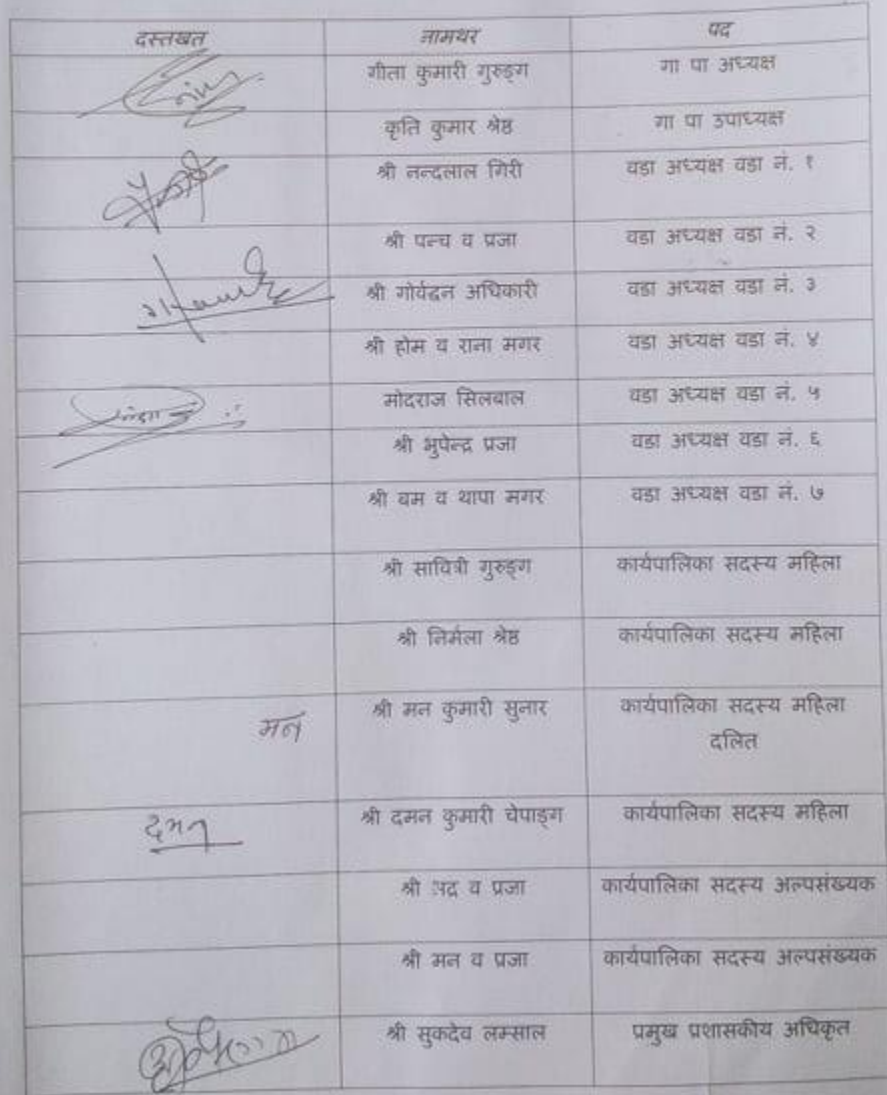 दस्तखत नामथर पद
गीता कुमारी गुरुङ्ग गा पा अध्यक्ष
कृति कुमार श्रेष्ठ गा पा उपाध्यक्ष
श्री नन्दलाल गिरी वडा अध्यक्ष वडा नं. १
श्री पन्च व प्रजा वडा अध्यक्ष वडा नं. २
श्री गोर्वद्धन अधिकारी वडा अध्यक्ष वडा नं. ३
श्री होम व राना मगर वडा अध्यक्ष वडा नं. ४
मोदराज सिलवाल वडा अध्यक्ष वडा नं. ५
श्री भुपेन्द्र प्रजा वडा अध्यक्ष वडा नं. ६
श्री वम व थापा मगर वडा अध्यक्ष वडा नं. ७
श्री सावित्री गुरुङ्ग कार्यपालिका सदस्य महिला
श्री निर्मला श्रेष्ठ कार्यपालिका सदस्य महिला
मन श्री मन कुमारी सुनार कार्यपालिका सदस्य महिला
दलित
दमन श्री दमन कुमारी चेपाङ्ग कार्यपालिका सदस्य महिला
श्री व प्रजा कार्यपालिका सदस्य अल्पसंख्यक
श्री मन व प्रजा कार्यपालिका सदस्य अल्पसंख्यक
श्री सुकदेव लम्साल प्रमुख प्रशासकीय अधिकृत